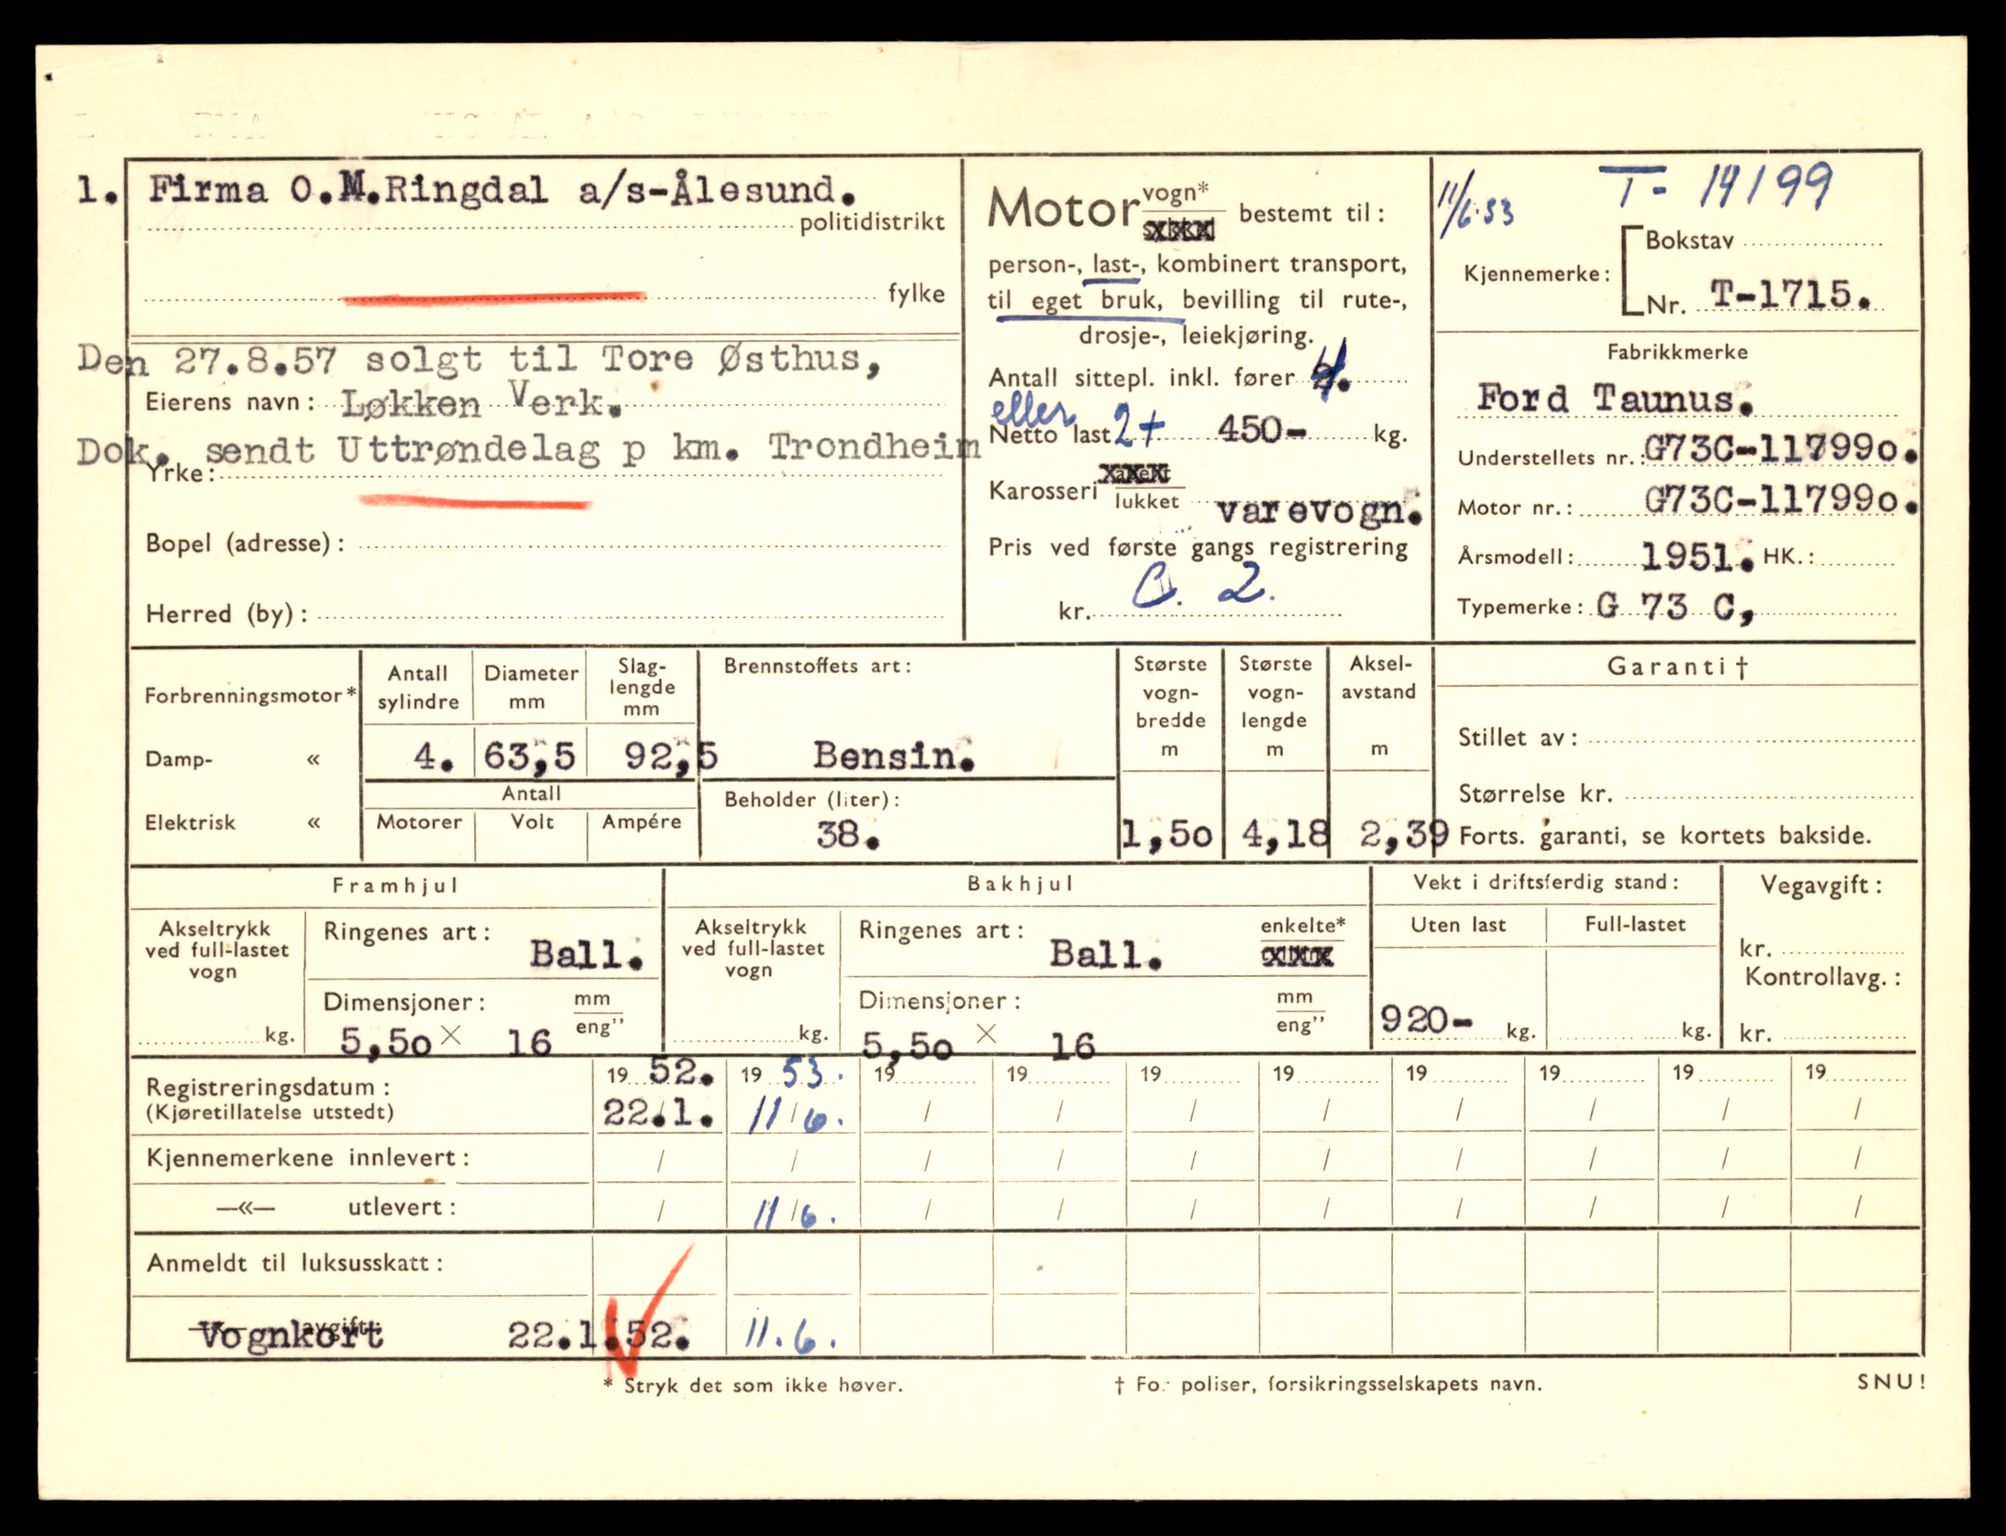 1. Firma O.M.Ringdal a/s-Ålesund.
politidistrikt
fylke
Den 27.8.57 solgt til Tore Østhus,
Eierens navn: Løkken Verk.
Dok. sendt Uttrøndelag p km. Trondheim
Yrke:
Bopel (adresse):
Herred (by):
Motor vogn* bestemt til:
person-, last-, kombinert transport,
til eget bruk, bevilling til rute-,
drosje-, leiekjøring.
Antall sittepl. inkl. fører 4.
eller
Netto last 2+ 450- kg.
Karosseri lukket varevogn.
Pris ved første gangs registrering
kr. C. 2.
11/6.53 T- 14199
Bokstav
Kjennemerke:
Nr. T-1715.
Fabrikkmerke
Ford Taunus.
Understellets nr.: G73C-11799o.
Motor nr.: G73C-11799o.
Årsmodell: 1951. HK.:
Typemerke: G 73 C,
Forbrenningsmotor*
Damp- «
Elektrisk «
Antall sylindre
Diameter mm
Slaglengde mm
4. 63,5 92,5
Antall
Motorer Volt Ampére
Brennstoffets art:
Bensin.
Beholder (liter):
38.
Største vognbredde m
1,5o
Største vognlengde m
4,18
Akselavstand m
2,39
Garanti †
Stillet av:
Størrelse kr.
Forts. garanti, se kortets bakside.
Framhjul
Akseltrykk ved full-lastet vogn
kg.
Ringenes art: Ball.
Dimensjoner: mm eng"
5,5o × 16
Bakhjul
Akseltrykk ved full-lastet vogn
kg.
Ringenes art: Ball. enkelte*
Dimensjoner: mm eng"
5,5o × 16
Vekt i driftsferdig stand:
Uten last Full-lastet
920- kg. kg.
Vegavgift:
kr.
Kontrollavg.:
kr.
19 52. 19 53. 19 19 19 19 19 19 19 19
Registreringsdatum:
(Kjøretillatelse utstedt) 22.1. 11/6. / / / / / / / /
Kjennemerkene innlevert: / / / / / / / / / /
—«— utlevert: / 11/6. / / / / / / / /
Anmeldt til luksusskatt:
Vognkort avgift: 22.1.52. 11.6.
* Stryk det som ikke høver.
† For poliser, forsikringsselskapets navn.
SNU!